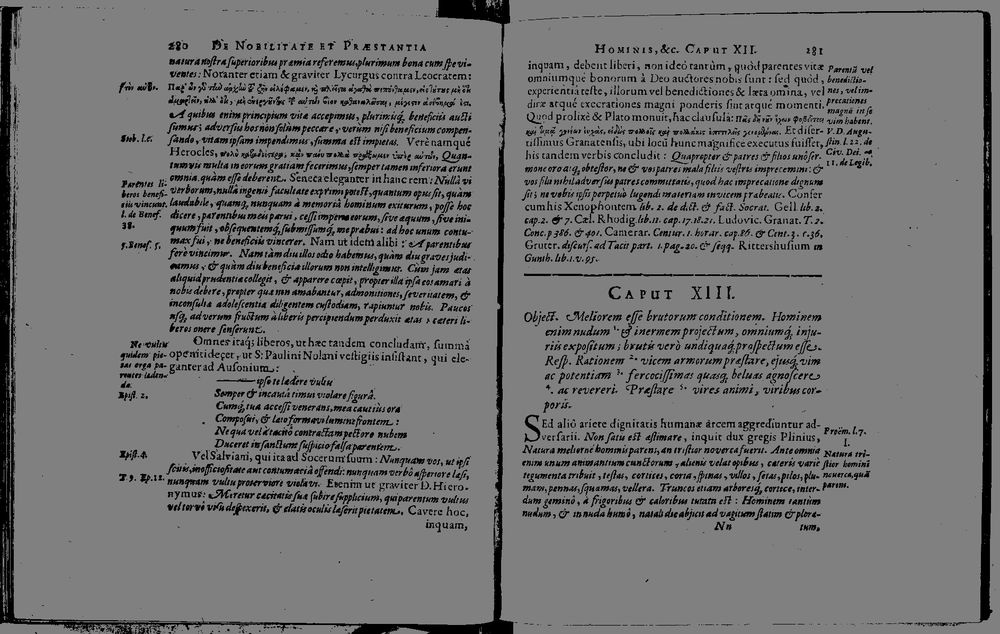 280 DE NOBILITATE ET PRÆSTANTIA
natura nostra superioribus præmia referemus, plurimum bona cum spe vi-
ventes: Notanter etiam & graviter Lycurgus contra Leocratem:
A quibus enim principium vitæ accepimus, plurimisq; beneficiis aucti
sumus; adversus hos non solùm peccare, verum nisi beneficium compen-
sando, vitam ipsam impendimus, summa est impietas. Verè namque
Stob. l.c.
Hierocles, Quan-
tumvis multa in eorum gratiam fecerimus, semper tamen inferiora erunt
omnia, quàm esse deberent. Seneca eleganter in hanc rem: Nullâ vi
Parentes li-
beros benefi-
ciis vincunt.
l. de Benef.
38.
verborum, nullâ ingenii facultate exprimi potest, quantum opus sit, quàm
laudabile, quamq; nunquam à memoria hominum exiturum, posse hoc
dicere, parentibus meis parui, cessi imperio eorum, sive æquum, sive ini-
quum fuit, obsequentemq; submissumq; me præbui: ad hoc unum contu-
max fui, ne beneficiis vincerer. Nam ut idem alibi: A parentibus
5. Benef. 5.
ferè vincimur. Nam tàm diu illos odio habemus, quàm diu graves judi-
camus, & quàm diu beneficia illorum non intelligimus. Cùm jam ætas
aliquid prudentiæ collegit, & apparere cœpit, propter illa ipsa eos amari à
nobis debere, propter quæ non amabantur, admonitiones, severitatem, &
inconsultæ adolescentiæ diligentem custodiam, rapiuntur nobis. Paucos
usq; ad verum fructum à liberis percipiendum perduxit ætas: cæteri li-
beros onere senserunt.
Omnes itaq; liberos, ut hæc tandem concludam, summâ
ope niti decet, ut S. Paulini Nolani vestigiis insistant, qui ele-
ganter ad Ausonium:
Ne vultu
quidem pie-
tas erga pa-
rentes læden-
da.
Epist. 2.
ipse te lædere vultu
Semper & incauta timui violare figurâ.
Cumq; tua accessi venerans, mea cautiùs ora
Composui, & læto formavi lumina frontem:
Ne qua vel à tacito contractam pectore nubem
Duceret in sanctum suspicio falsa parentem.
Epist. 4.
Vel Salviani, qui ita ad Socerum suum: Nunquam vos, ut ipsi
scitis, inofficiositate aut contumacia offendi: nunquam verbo asperiore læsi,
T. 9. Ep. 12.
nunquam vultu proterviore violavi. Etenim ut graviter D. Hiero-
nymus: Meretur cæcitatis suæ subire supplicium, qui parentum vultus
vel torvo visu despexerit, & elatis oculis læserit pietatem. Cavere hoc,
inquam,
HOMINIS, &c. CAPUT XII. 281
inquam, debent liberi, non ideò tantùm, quòd parentes vitæ
omniumque bonorum à Deo auctores nobis sint: sed quòd,
experientiâ teste, illorum vel benedictiones & læta omina, vel
diræ atque execrationes magni ponderis sint atque momenti.
Parentũ vel
benedictio-
nes, vel im-
precationes
magnã in se
vim habent.
Quod prolixè & Plato monuit, hac clausula:
Et diser-
V. D. Augu-
stin. l. 22. de
Civ. Dei.
11. de Legib.
tissimus Granatensis, ubi locũ hunc magnifice executus fuisset,
his tandem verbis concludit: Quapropter & patres & filios unà ser-
mone oro atq; obtestor, ne & vos patres mala filiis vestris imprecemini: &
vos filii nihil adversus patres committatis, quod hac imprecatione dignum
sit; ne vobis ipsi perpetuò lugendi materiam invicem præbeatis. Confer
cum his Xenophontem lib. 2. de d.ct. & fact. Socrat. Gell lib. 2.
cap. 2. & 7. Cæl. Rhodig. lib. 11. cap. 17. 18. 21. Ludovic. Granat. T. 2.
Conc. p 386. & 401. Camerar. Centur. 1. horar. cap. 86. & Cent. 3. c. 36.
Gruter. discurs. ad Tacit part. 1. pag. 20. & seqq. Rittershusium in
Gunth. lib. 1. v. 95.
CAPUT XIII.
Object. Meliorem esse brutorum conditionem. Hominem
enim nudum 1. & inermem projectum, omniumq; inju-
riis expositum; brutis verò undiquaq; prospectum esse.
Resp. Rationem 2. vicem armorum præstare, ejusq; vim
ac potentiam 3. ferocissimas quasq; beluas agnoscere
4. ac revereri. Præstare 5. vires animi, viribus cor-
poris.
Sed aliô ariete dignitatis humanæ arcem aggrediuntur ad-
versarii. Non satu est æstimare, inquit dux gregis Plinius,
Proœm. l. 7.
1.
Natura melior ne homini parens, an tristior noverca fuerit. Ante omnia
Natura tri-
stior homini
noverca, quã
parens.
enim unum animantium cunctorum, alienis velat opibus, cæteris variè
tegumenta tribuit, testas, cortices, coria, spinas, villos, setas, pilos, plu-
mam, pennas, squamas, vellera. Truncos etiam arboresq; cortice, inter-
dum geminô, à frigoribus & caloribus tutata est: Hominem tantùm
nudum, & in nuda humô, natali die abjicit ad vagitum statim & plora-
Nn tum,